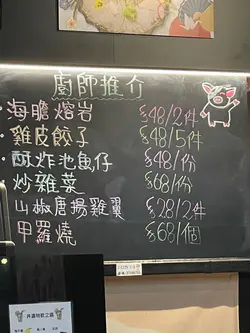 廚師推介
・海膽熔岩 $48/2件
・雞皮餃子 $48/5件
・酥炸池魚仔 $48/份
・炒雜菜 $68/份
・山椒唐揚雞翼 $28/2件
甲羅燒 $68/個